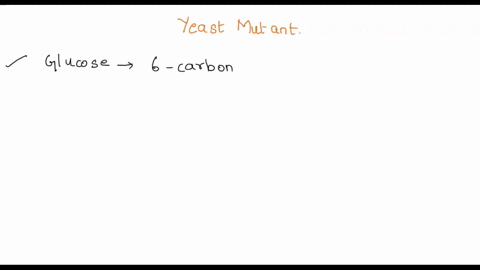 Yeast Mutant.
✓ Glucose → 6-carbon